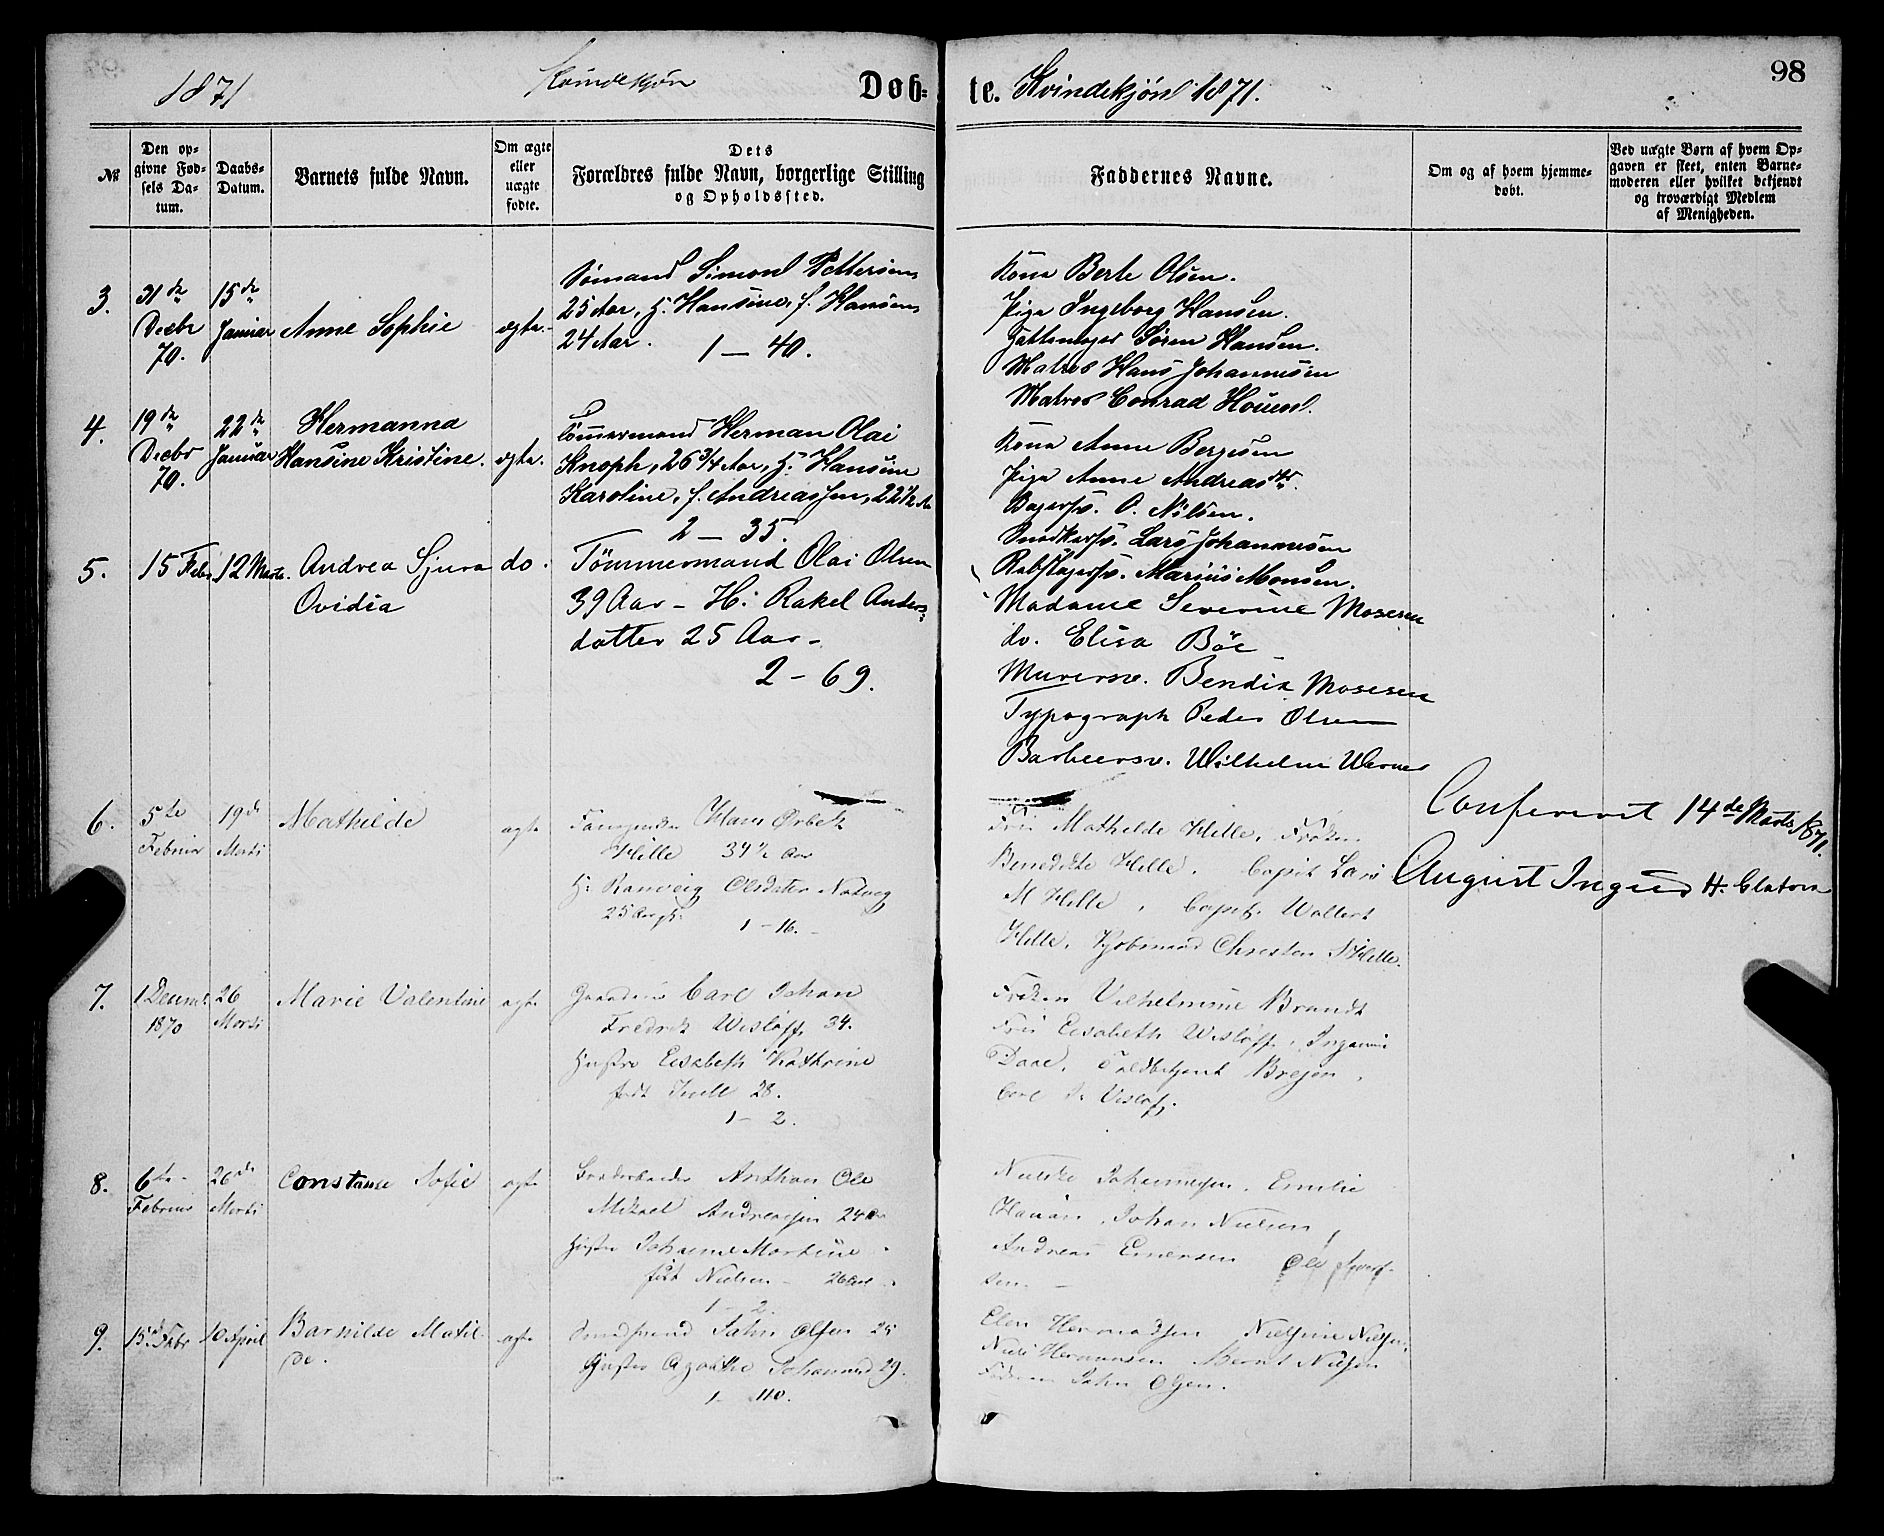 98
1871 Kvindekjøn Døb-
te. Kvindekjøn 1871.
№
Den op-
givne Fød-
sels Da-
tum.
Daabs-
Datum.
Barnets fulde Navn.
Om ægte
eller
uægte
fødte.
Dets
Forældres fulde Navn, borgerlige Stilling
og Opholdssted.
Faddernes Navne.
Om og af hvem hjemme-
døbt.
Ved uægte Børn af hvem Op-
gaven er skeet, enten Barne-
moderen eller hvilket bekjendt
og troværdigt Medlem
af Menigheden.
3.
31 de
Decbr
70.
15 de
Januar
Anne Sophie
ægte.
Sømand Simon Pettersen,
25 Aar, H. Hansine, f. Hansen,
24 Aar. 1 – 40.
Kona Berte Olsen.
Pige Ingeborg Hansen.
Søren Hansen.
Matros Hans Johannesen
Matros Conrad
4.
19 de
Decbr
70.
22 de
Januar
Hermanna
Hansine Kristine.
ægte.
Tømmermand Herman Olai
Knoph, 26 3/4 Aar, H. Hansine
Karoline, f. Andreassen, 22 1/2 A
2 – 35.
Kona Anne Bergesen
Pige Anne Andreasdtr.
Bagersv. O. Nilsen.
Snedkersv. Lars Johannesen
Rebslagersv. Marius Monsen.
5.
15 Febr
12 Marts.
Andrea Sjura
Ovidia
do.
Tømmermand Olai Olsen
39 Aar – H: Rakel Anders-
datter 25 Aar –
2 – 69.
Madame Severine Mosesen
do. Elisa Böe
Murersv. Bendix Mosesen
Typograph Peder Olsen
Barbeersv. Wilhelm Werner
6.
5 te
Februar
19 d
Marti
Mathilde
ægte
Hans Ørbek
Hille 34 1/2 Aar
H: Ranveig Olsdater Natvig
25 Aar
1 – 16.
Mathilde Hille, Frøken
Benedikte Hille. Capit Lars
M Hille, Capt. Wallert
Hille, Kjøbmand Christen Hille.
Confereret 14de Marts 1871.
August
7.
1 Decemb
1870
26
Marti
Marie Valentine
ægte
Carl Johan
Fredrik Wisløff 34.
Hustro Elisabeth Kathrine
født 28.
1 – 2.
Frøken Vilhelmine Brandt
Elisabeth Wisløff,
Daae,
Carl Wisløff.
8.
6 te
Februar
26 de
Marti
Constanse Sofie
ægte
Anthon Ole
Mikael Andreasen 24
Hustro Johanne Martine
født Nielsen – 26 Aar
1 – 2.
Johannesen. Emilie
Johan Nielsen,
Andreas Ole
sen –
9.
15 d Febr
10 April
Barnilde Matil-
de.
ægte
Jahn Olsen 25
Hustro Agathe 29.
1 – 110.
Elen Nielsine Nielsen,
Niels Hermansen Bernt Nielsen
Faderen Jahn Olsen.